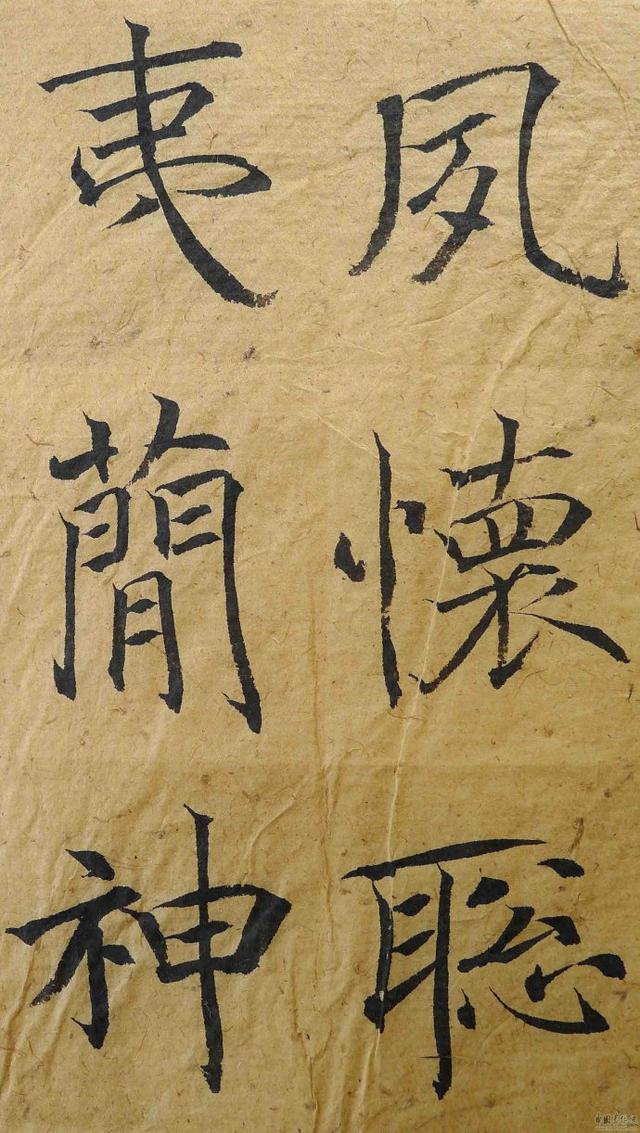 夙懷聰
夷簡神